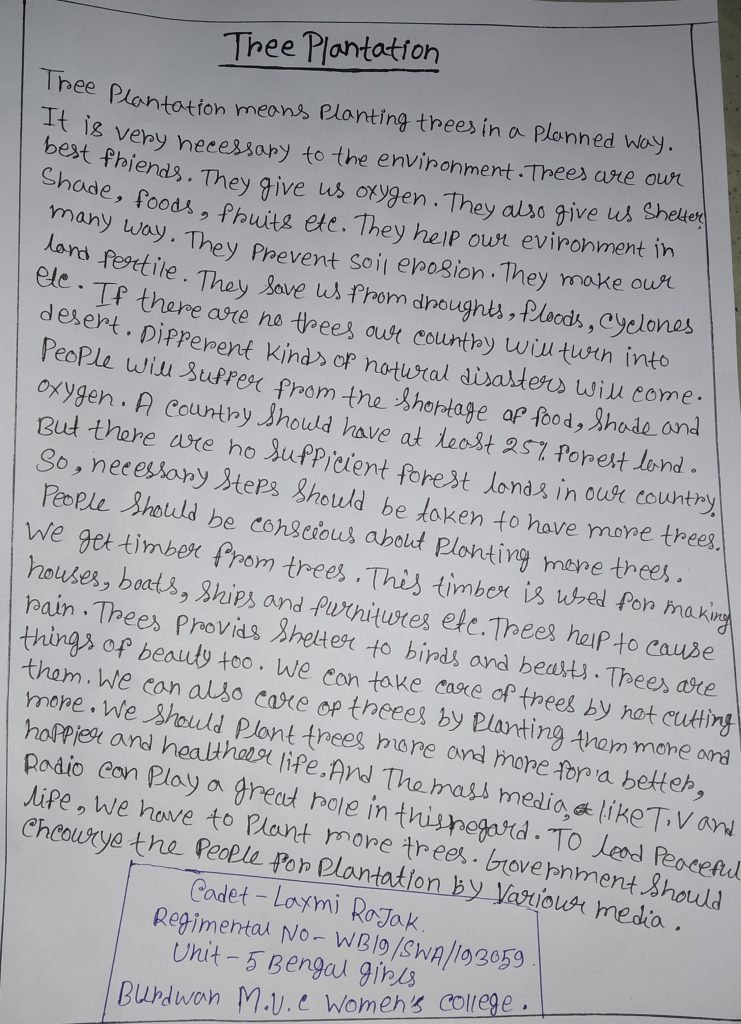 Tree Plantation
Tree Plantation means Planting trees in a Planned way.
It is very necessary to the environment. Trees are our
best friends. They give us oxygen. They also give us Shelter,
Shade, foods, fruits etc. They help our evironment in
many way. They Prevent soil erosion. They make our
land fertile. They save us from droughts, floods, cyclones
etc. If there are no trees our country will turn into
desert. Different kinds of natural disasters will come.
People will suffer from the shortage of food, Shade and
oxygen. A country should have at least 25% forest land.
But there are no sufficient forest lands in our country.
So, necessary steps should be taken to have more trees.
People should be conscious about Planting more trees.
We get timber from trees. This timber is used for making
houses, boats, ships and furnitures etc. Trees help to cause
rain. Trees Provids shelter to birds and beasts. Trees are
things of beauty too. We can take care of trees by not cutting
them. We can also care of threes by Planting them more and
more. We should Plant trees more and more for a better,
happier and healtheer life. And The mass media, like T.V and
Radio can Play a great role in this regard. To lead Peaceful
life, We have to Plant more trees. Government should
encourye the People for Plantation by Variour media.
Cadet - Laxmi Rajak.
Regimental No - WB19/SWA/193059.
Unit - 5 Bengal girls
Burdwan M.U.C Women's college.